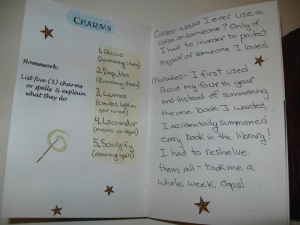 CHARMS
Homework:
List five (5) charms
or spells & explain
what they do
1. Accio
(Summoning Charm)
2. Depulso
(Banishing Charm)
3. Lumos
(creates light in
your wand)
4. Locomotor
(moves an object)
5. Scourgify
(cleaning spell)
Curses: Would I ever use a
curse on someone? Only if
I had to in order to protect
myself or someone I loved.
Mistakes - I first used
Accio my fourth year
and instead of summoning
the one book I wanted,
I accidentally summoned
every book in the library!
I had to reshelve
them all - took me a
whole week. Oops!